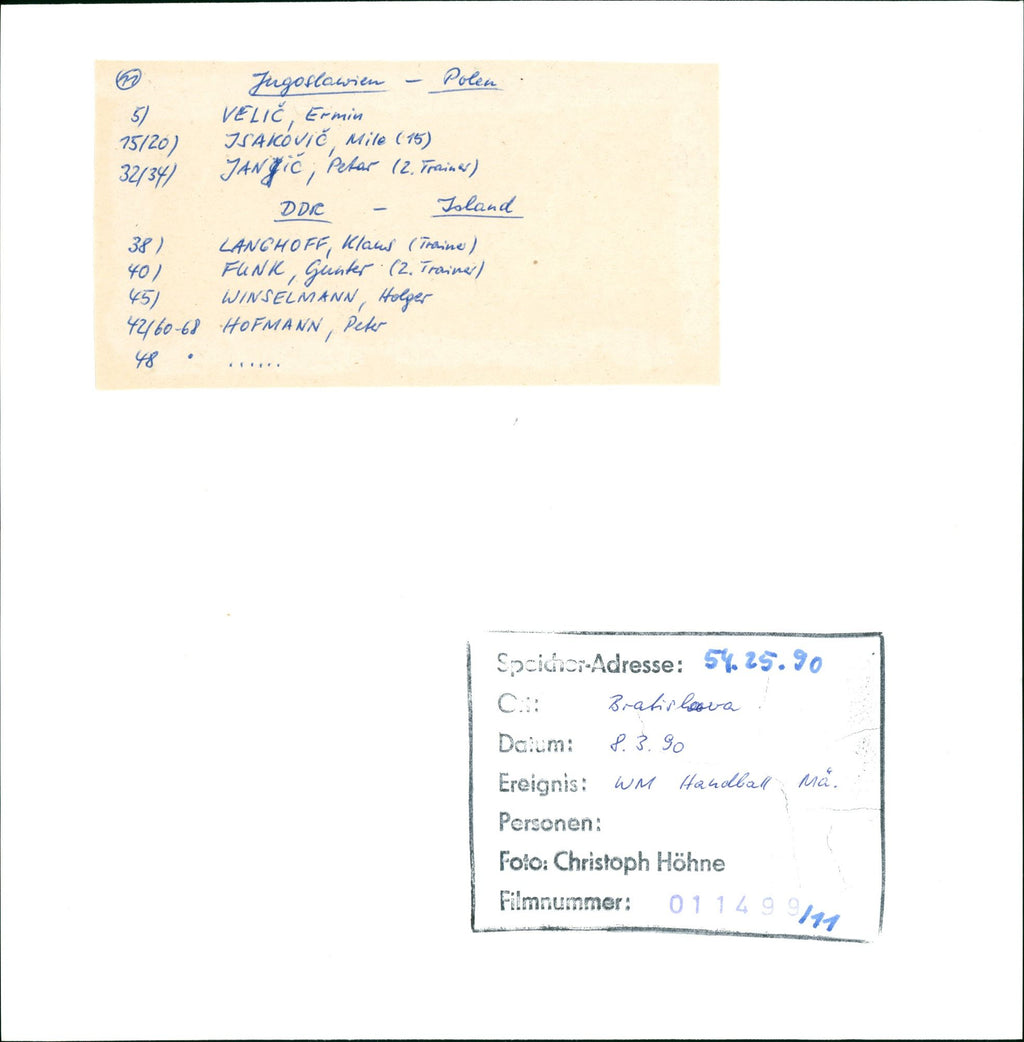 11 Jugoslawien – Polen
5) VELIČ, Ermin
15/20) ISAKOVIČ, Mile (15)
32/34) JANJIČ, Petar (2. Trainer)
DDR – Island
38) LANGHOFF, Klaus (Trainer)
40) FUNK, Gunter (2. Trainer)
45) WINSELMANN, Holger
42/60-68 HOFMANN, Peter
48 • ......
Speicher-Adresse: 54.25.90
Ort: Bratislava
Datum: 8.3.90
Ereignis: WM Handball Mä.
Personen:
Foto: Christoph Höhne
Filmnummer: 011499/11